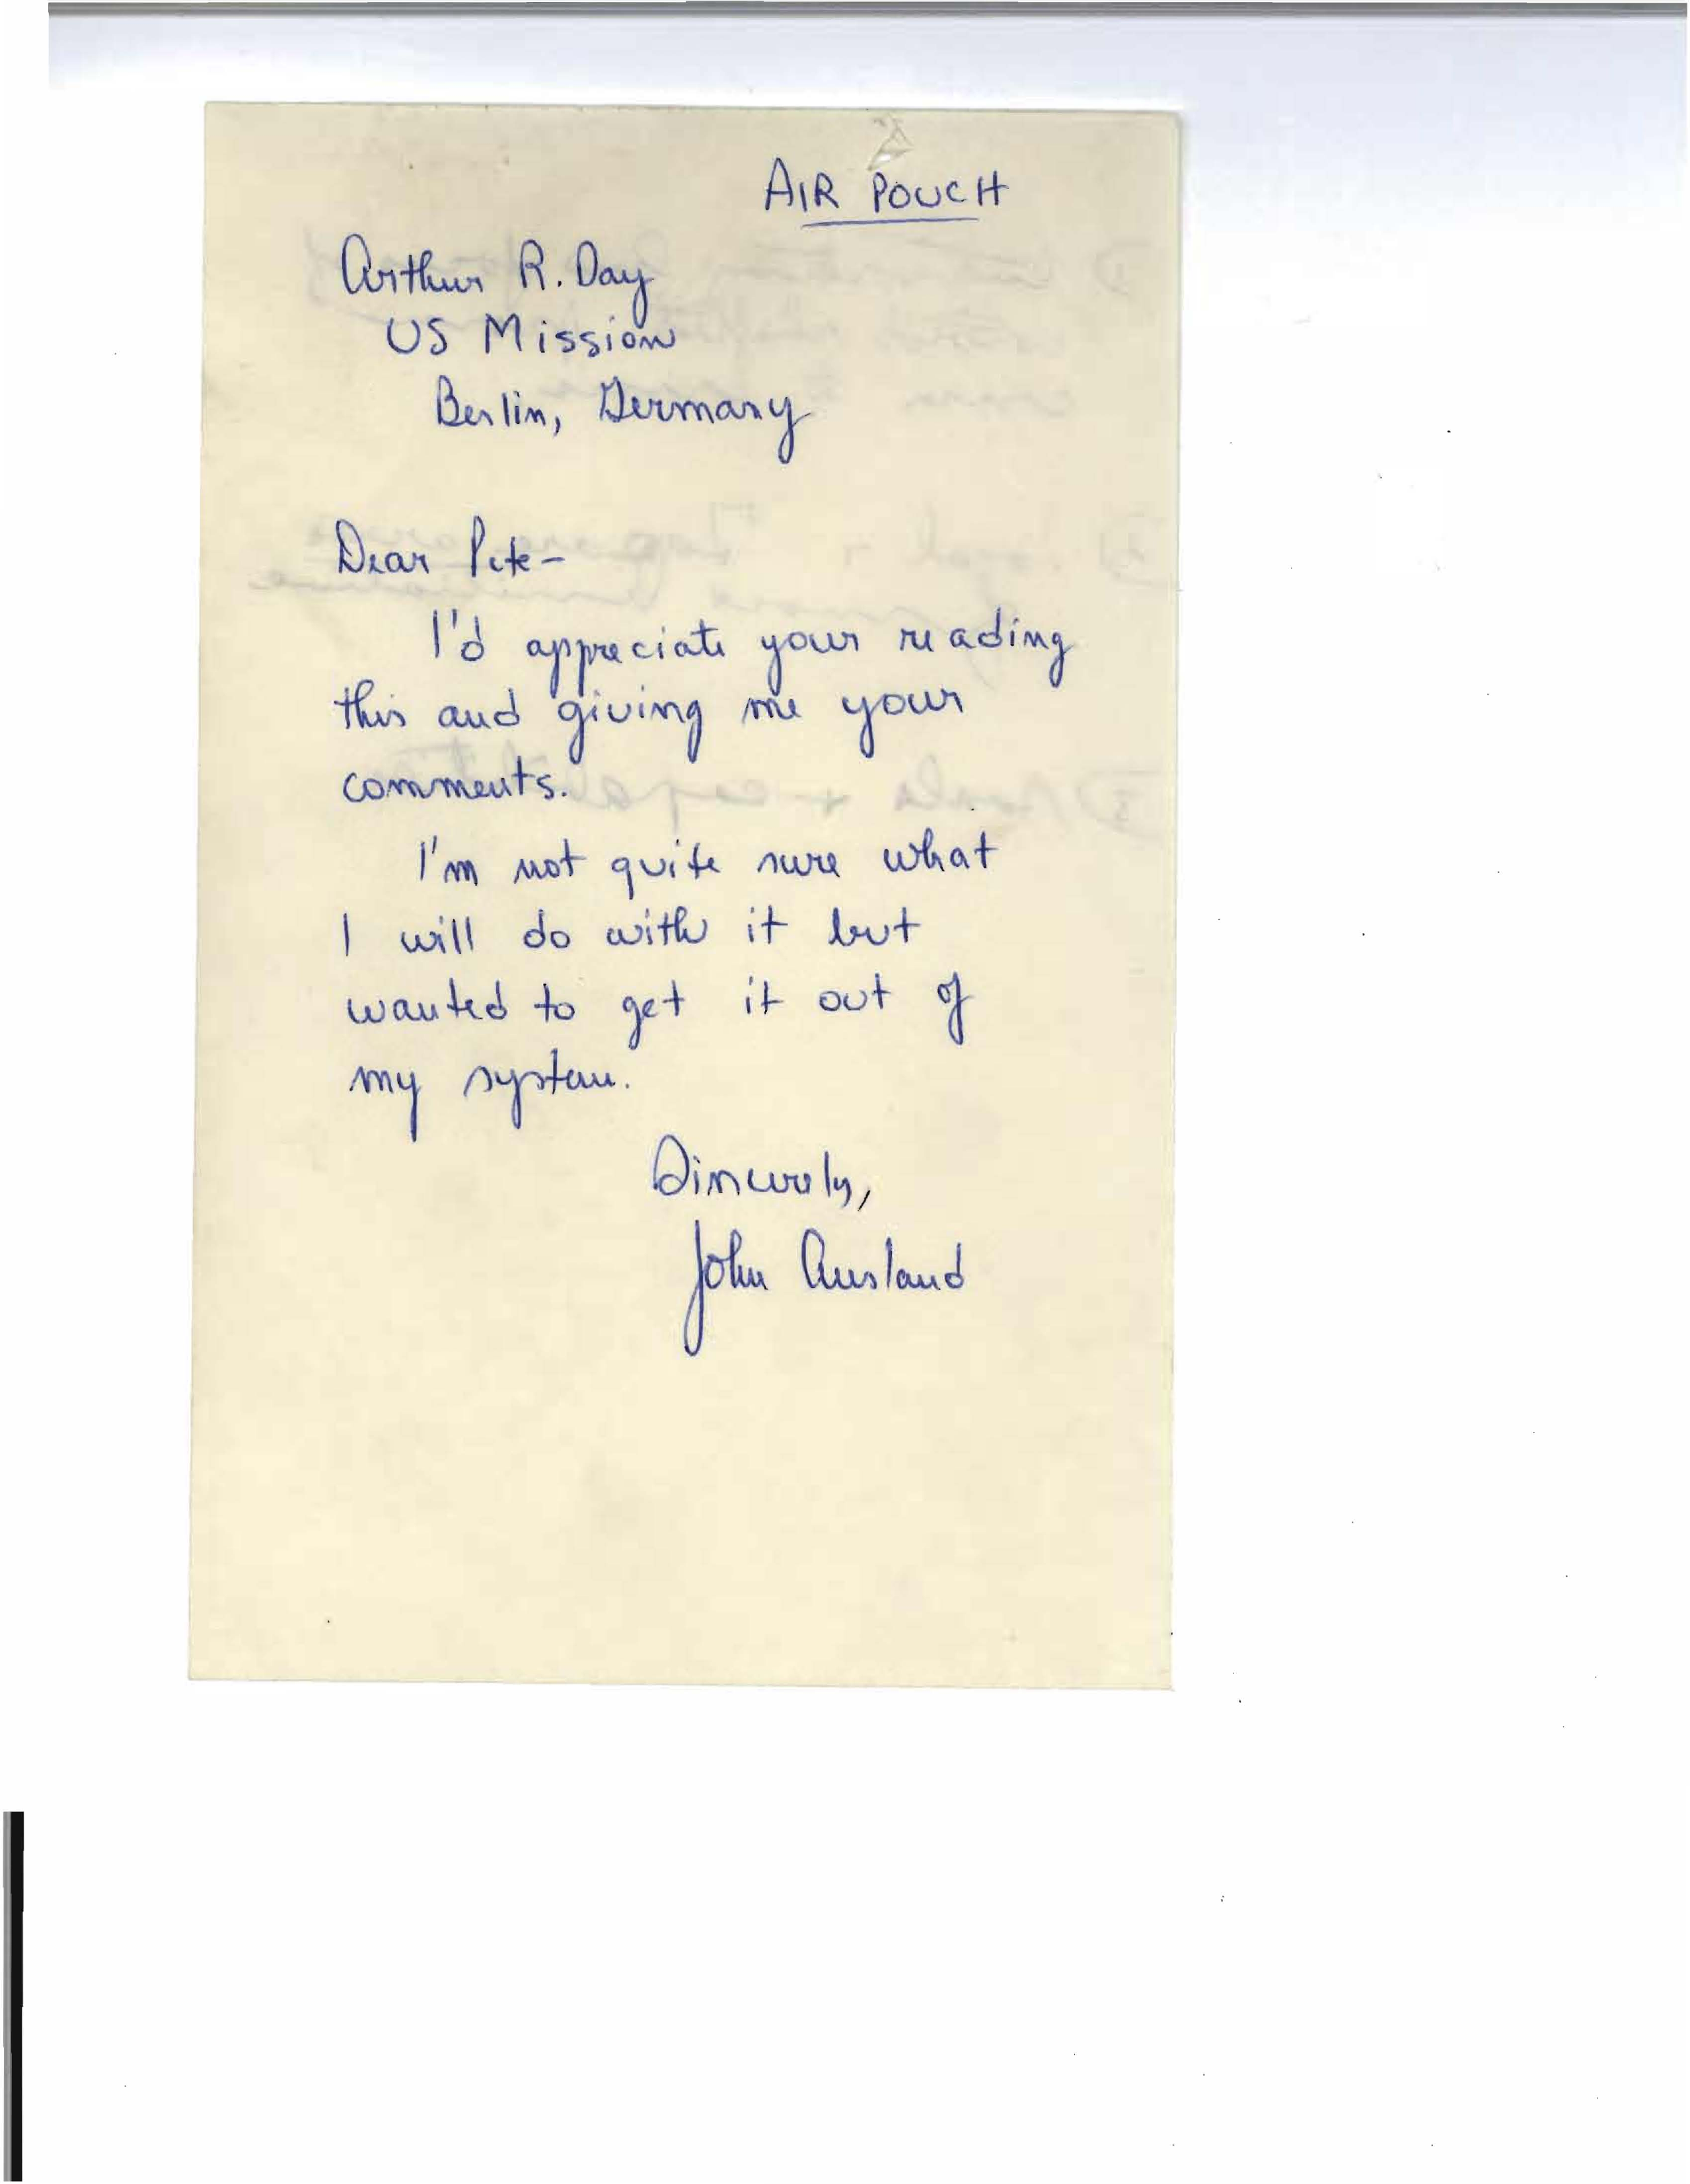 AIR POUCH
Arthur R. Day
US Mission
Berlin, Germany
Dear Pete-
I'd appreciate your reading
this and giving me your
comments.
I'm not quite sure what
I will do with it but
wanted to get it out of
my system.
Sincerely,
John Ausland